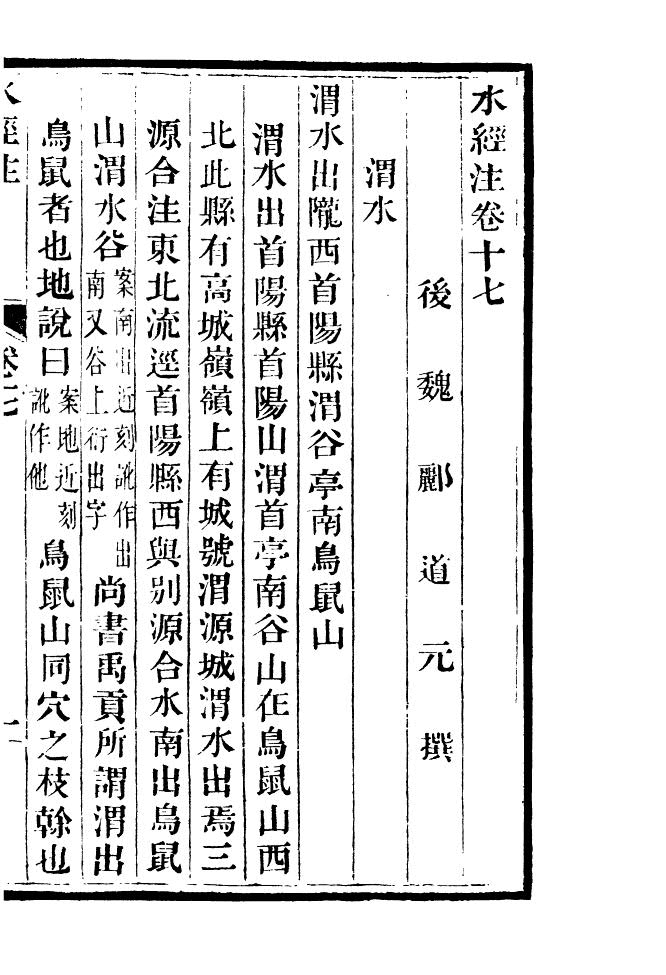 水經注卷十七
後魏酈道元撰
渭水
渭水出隴西首陽縣渭谷亭南鳥鼠山
渭水出首陽縣首陽山渭首亭南谷山在鳥鼠山西
北此縣有高城嶺嶺上有城號渭源城渭水出焉三
源合注東北流逕首陽縣西與别源合水南出鳥鼠
山渭水谷案南出近刻訛作出南又谷上衍出字尚書禹貢所謂渭出
鳥鼠者也地說曰案地近刻訛作他鳥鼠山同穴之枝幹也
水經注 卷十七 一